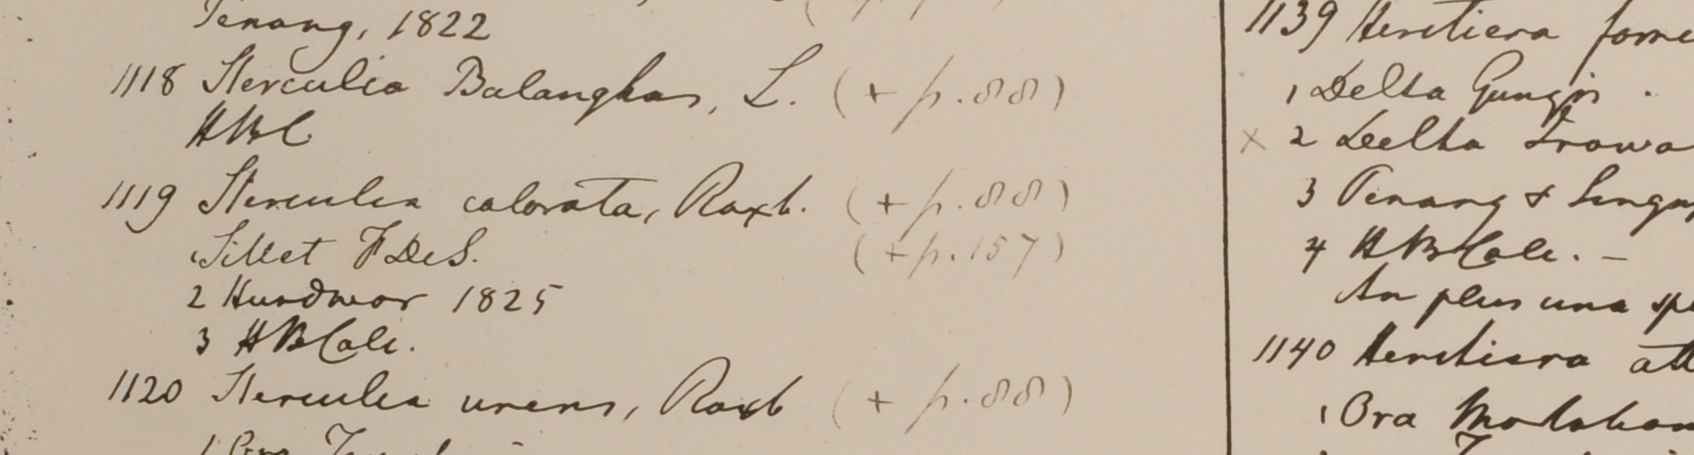 Penang, 1822
1118 Sterculia Balanghas, L. (+ p. 88)
HBC
1119 Sterculia colorata, Roxb. (+ p. 88)
Sillet FDeS. (+ p. 157)
2 Hurdwar 1825
3 HBCalc.
1120 Sterculia urens, Roxb (+ p. 88)
1
1139 Heretiera fome
1 Delta Gangis.
x 2 Delta Irawa
3 Penang & Singap
4 HBCalc. –
An plus una spe
1140 Heretiera att
1 Ora Malabar